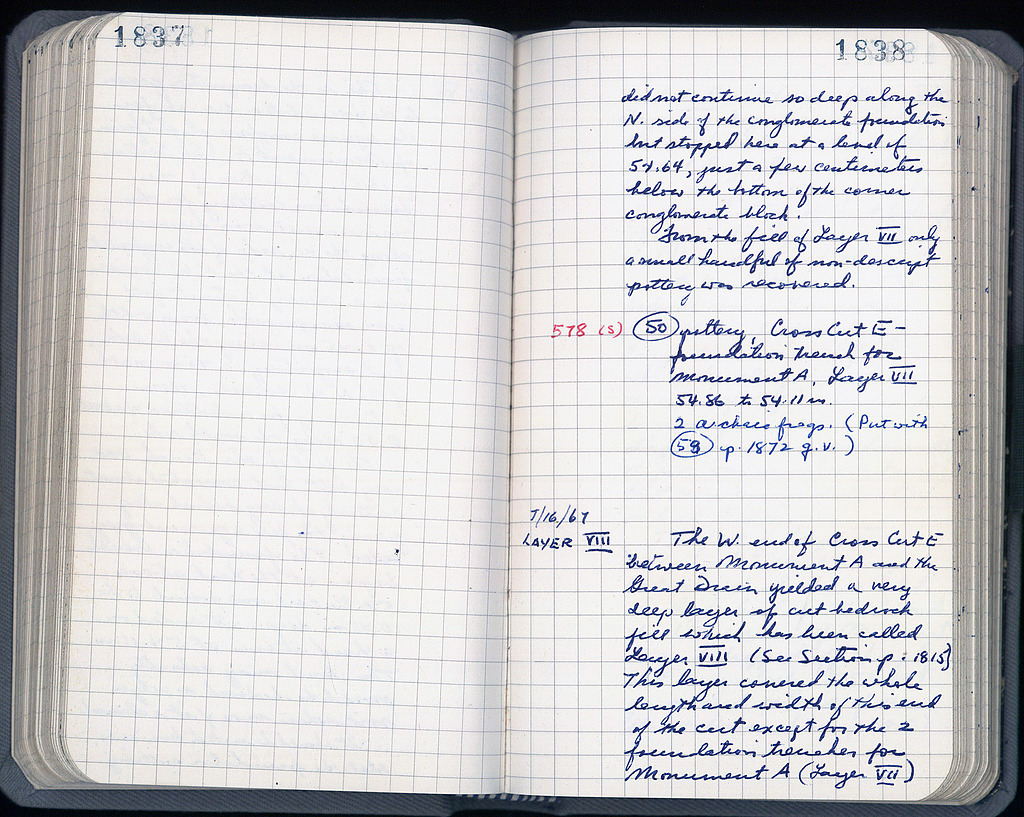 1837
1838
did not continue so deep along the
N. side of the conglomerate foundation
but stopped here at a level of
54.64, just a few centimeters
below the bottom of the corner
conglomerate block.
From the fill of Layer VII only
a small handful of non-descript
pottery was recovered.
578 (S) 50 pottery, Cross Cut E -
foundation trench for
Monument A, Layer VII
54.86 to 54.11 m.
2 archaic frags. (Put with
59 p. 1872 q.v.)
7/16/67
LAYER VIII The W. end of Cross Cut E
between Monument A and the
Great Drain yielded a very
deep layer of cut bedrock
fill which has been called
Layer VIII (See Section p. 1815)
This layer covered the whole
length and width of this end
of the cut except for the 2
foundation trenches for
Monument A (Layer VII)